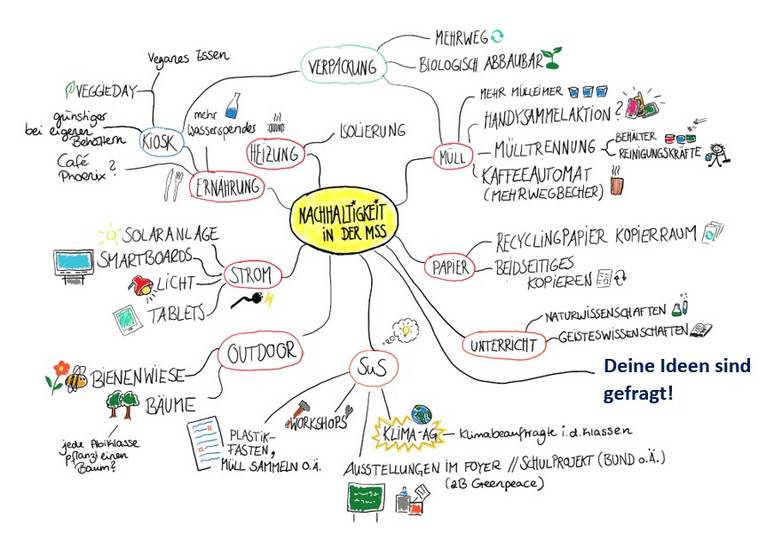 NACHHALTIGKEIT
IN DER MSS
VERPACKUNG
MEHRWEG
BIOLOGISCH ABBAUBAR
MÜLL
MEHR MÜLLEIMER
HANDYSAMMELAKTION?
MÜLLTRENNUNG
BEHÄLTER
REINIGUNGSKRÄFTE
KAFFEEAUTOMAT
(MEHRWEGBECHER)
PAPIER
RECYCLINGPAPIER KOPIERRAUM
BEIDSEITIGES
KOPIEREN
UNTERRICHT
NATURWISSENSCHAFTEN
GEISTESWISSENSCHAFTEN
Deine Ideen sind
gefragt!
SuS
PLASTIK-
FASTEN,
MÜLL SAMMELN O.Ä.
WORKSHOPS
KLIMA-AG
Klimabeauftragte i.d. Klassen
AUSSTELLUNGEN IM FOYER // SCHULPROJEKT (BUND o.Ä.)
(zB Greenpeace)
OUTDOOR
BIENENWIESE
BÄUME
jede Abiklasse
pflanzt einen
Baum?
STROM
SOLARANLAGE
SMARTBOARDS
LICHT
TABLETS
ERNÄHRUNG
mehr
Wasserspender
KIOSK
Veganes Essen
VEGGIEDAY
günstiger
bei eigenen
Behältern
Café
Phoenix?
HEIZUNG
ISOLIERUNG